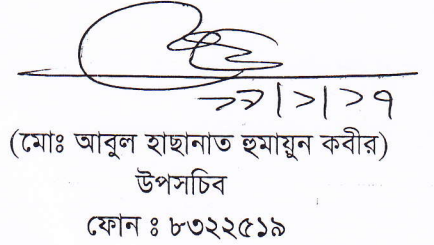 ২২|১|১৭
(মোঃ আবুল হাছানাত হুমায়ুন কবীর)
উপসচিব
ফোন ঃ ৮৩২২৫১৯